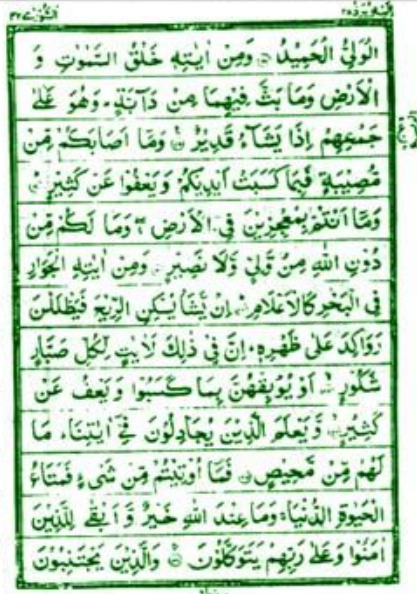 الشورى ٤٢ اليه يرد ٢٥
الْوَلِيُّ الْحَمِيْدُ ۝ وَمِنْ اٰيٰتِهٖ خَلْقُ السَّمٰوٰتِ وَ
الْاَرْضِ وَمَا بَثَّ فِيْهِمَا مِنْ دَآبَّةٍ ؕ وَهُوَ عَلٰى
جَمْعِهِمْ اِذَا يَشَآءُ قَدِيْرٌ ۝ وَمَاۤ اَصَابَكُمْ مِّنْ
مُّصِيْبَةٍ فَبِمَا كَسَبَتْ اَيْدِيْكُمْ وَيَعْفُوْا عَنْ كَثِيْرٍ ۝
وَمَاۤ اَنْتُمْ بِمُعْجِزِيْنَ فِي الْاَرْضِ ۚ وَمَا لَكُمْ مِّنْ
دُوْنِ اللّٰهِ مِنْ وَّلِيٍّ وَّلَا نَصِيْرٍ ۝ وَمِنْ اٰيٰتِهِ الْجَوَارِ
فِي الْبَحْرِ كَالْاَعْلَامِ ۝ اِنْ يَّشَاْ يُسْكِنِ الرِّيْحَ فَيَظْلَلْنَ
رَوَاكِدَ عَلٰى ظَهْرِهٖ ؕ اِنَّ فِيْ ذٰلِكَ لَاٰيٰتٍ لِّكُلِّ صَبَّارٍ
شَكُوْرٍ ۝ اَوْ يُوْبِقْهُنَّ بِمَا كَسَبُوْا وَيَعْفُ عَنْ
كَثِيْرٍ ۝ وَّيَعْلَمَ الَّذِيْنَ يُجَادِلُوْنَ فِيْۤ اٰيٰتِنَا ؕ مَا
لَهُمْ مِّنْ مَّحِيْصٍ ۝ فَمَاۤ اُوْتِيْتُمْ مِّنْ شَيْءٍ فَمَتَاعُ
الْحَيٰوةِ الدُّنْيَا ۚ وَمَا عِنْدَ اللّٰهِ خَيْرٌ وَّاَبْقٰى لِلَّذِيْنَ
اٰمَنُوْا وَعَلٰى رَبِّهِمْ يَتَوَكَّلُوْنَ ۝ وَالَّذِيْنَ يَجْتَنِبُوْنَ